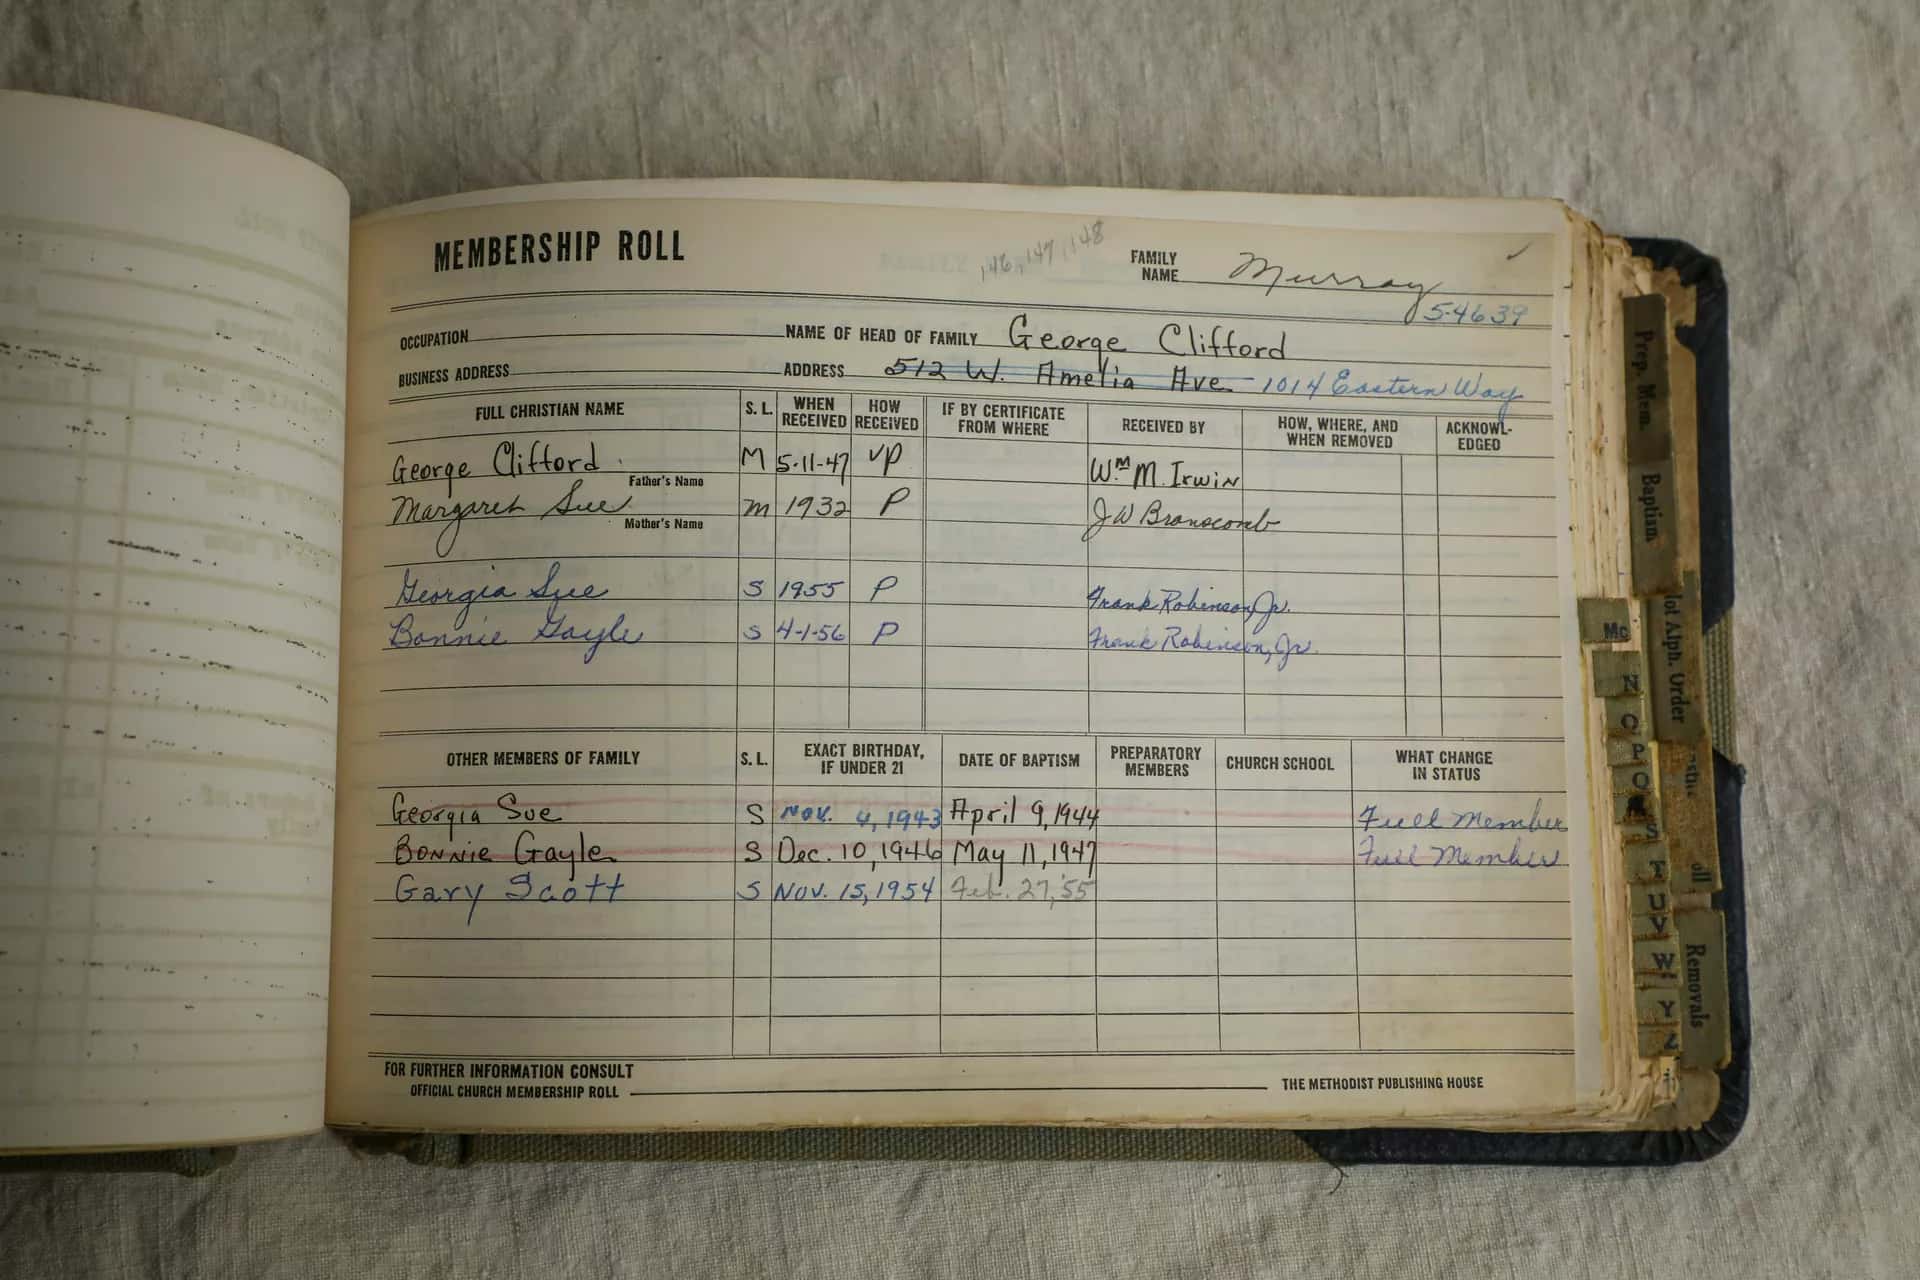 MEMBERSHIP ROLL
146, 147, 148
FAMILY NAME Murray
5-4639
OCCUPATION NAME OF HEAD OF FAMILY George Clifford
BUSINESS ADDRESS ADDRESS 512 W. Amelia Ave - 1014 Eastern Way
FULL CHRISTIAN NAME S. L. WHEN RECEIVED HOW RECEIVED IF BY CERTIFICATE FROM WHERE RECEIVED BY HOW, WHERE, AND WHEN REMOVED ACKNOWL-EDGED
George Clifford M 5-11-47 VP Wm M. Irwin
Father's Name
Margaret Sue m 1932 P JW Branscomb
Mother's Name
Georgia Sue S 1955 P Frank Robinson, Jr.
Bonnie Gayle S 4-1-56 P Frank Robinson, Jr.
OTHER MEMBERS OF FAMILY S. L. EXACT BIRTHDAY, IF UNDER 21 DATE OF BAPTISM PREPARATORY MEMBERS CHURCH SCHOOL WHAT CHANGE IN STATUS
Georgia Sue S Nov. 4, 1943 April 9, 1944 Full Member
Bonnie Gayle S Dec. 10, 1946 May 11, 1947 Full Member
Gary Scott S Nov. 15, 1954 Feb. 27, '55
FOR FURTHER INFORMATION CONSULT
OFFICIAL CHURCH MEMBERSHIP ROLL THE METHODIST PUBLISHING HOUSE
Prep. Mem.
Baptism
Alph. Order
Removals
Mc
N
O
P
Q
S
T
U
V
W
Y
Z